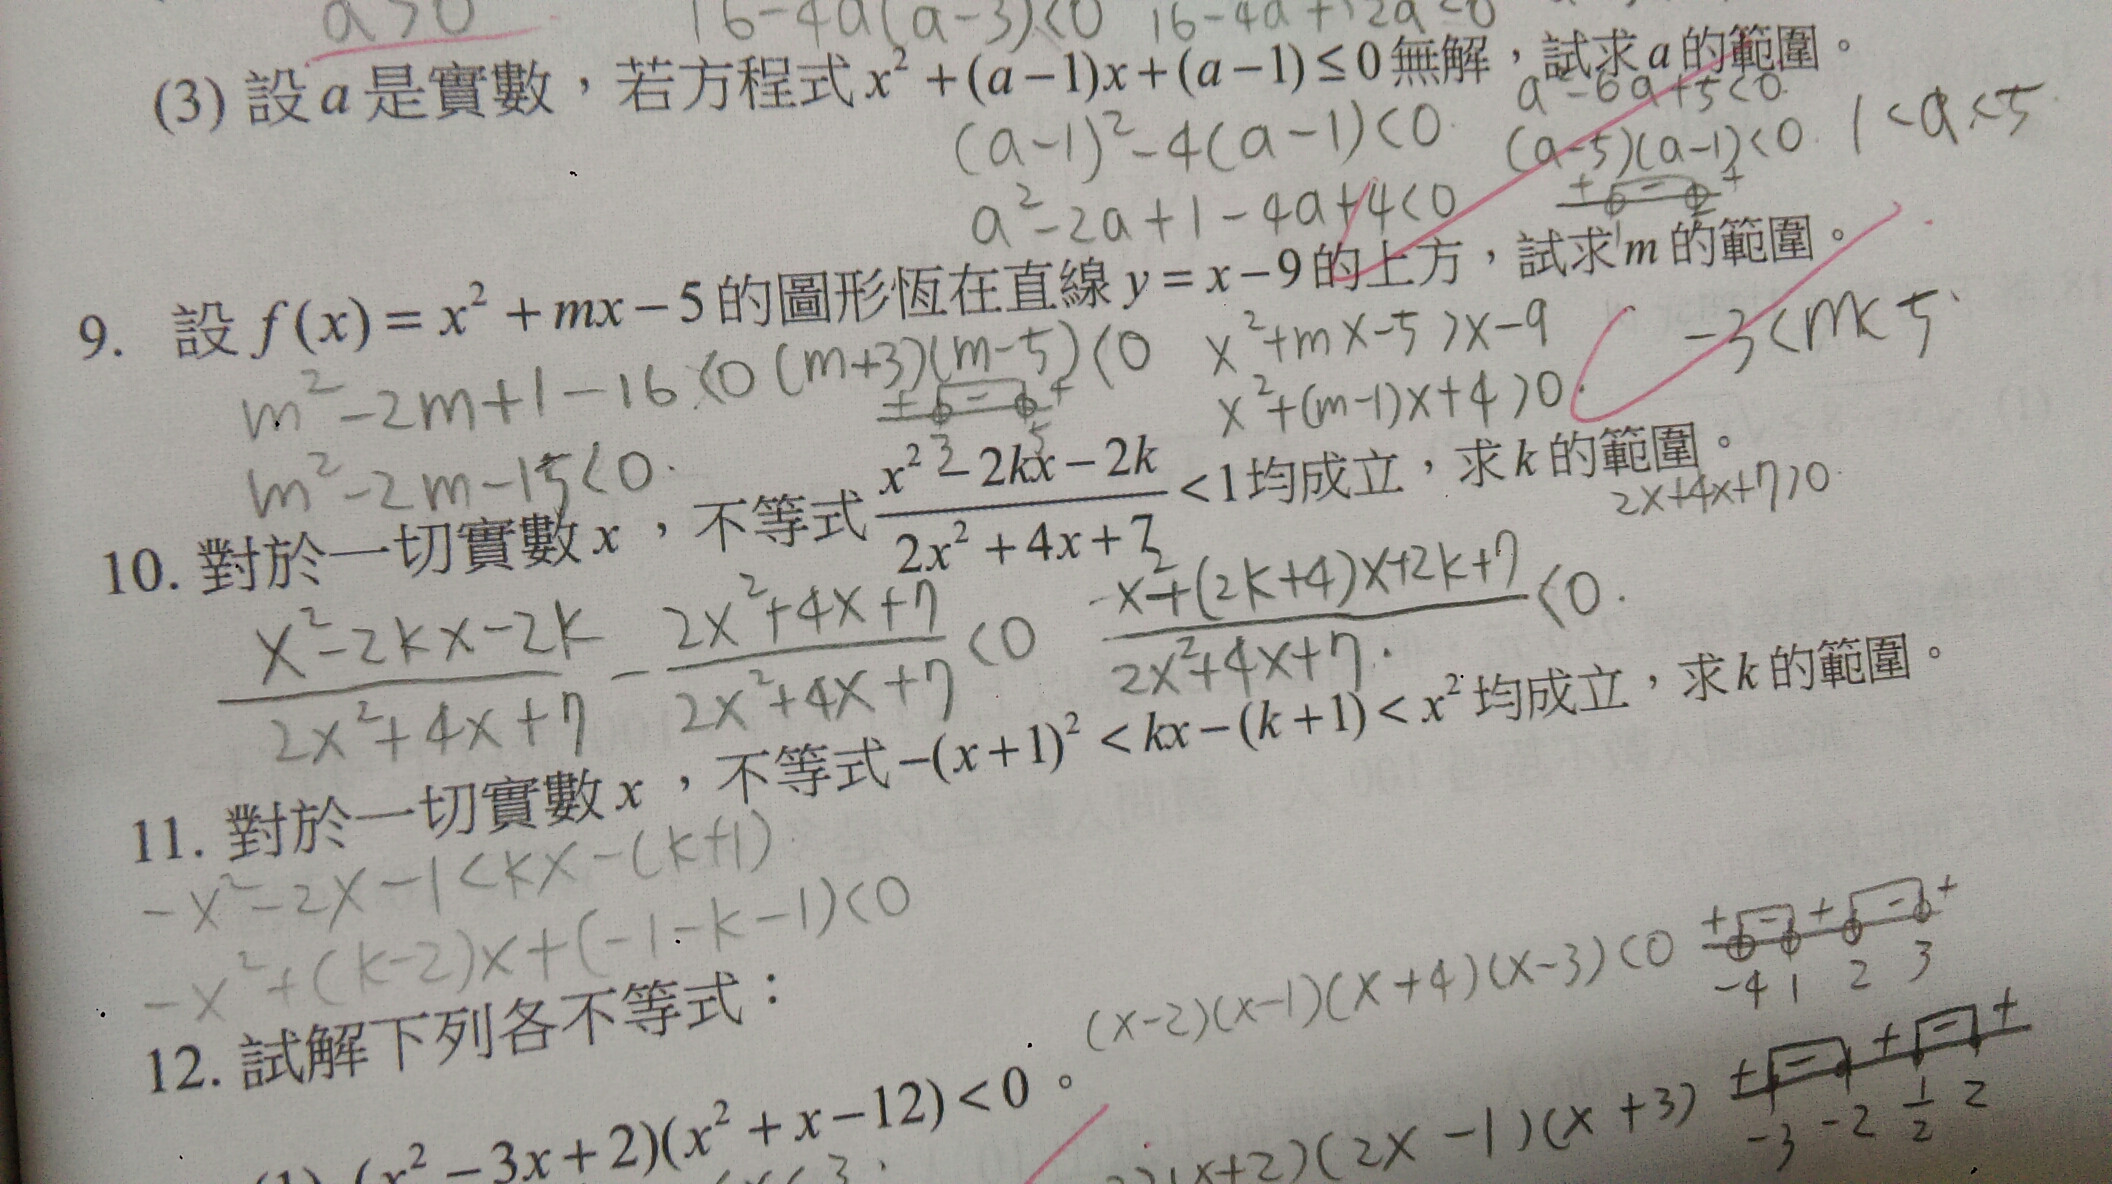 a>0 16-4a(a-3)<0 16-4a+12a<0
(3) 設 a 是實數，若方程式 x² + (a-1)x + (a-1) ≤ 0 無解，試求 a 的範圍。
(a-1)²-4(a-1)<0 a²-6a+5<0
a²-2a+1-4a+4<0 (a-5)(a-1)<0 1<a<5
+ - +
1
9. 設 f(x) = x² + mx - 5 的圖形恆在直線 y = x - 9 的上方，試求 m 的範圍。
m²-2m+1-16<0 (m+3)(m-5)<0 x²+mx-5>x-9 -3<m<5
m²-2m-15<0 + - + x²+(m-1)x+4>0
10. 對於一切實數 x ，不等式 (x² - 2kx - 2k)/(2x² + 4x + 7) < 1 均成立，求 k 的範圍。
2x+4x+7>0
(x²-2kx-2k)/(2x²+4x+7) - (2x²+4x+7)/(2x²+4x+7) <0 (-x²+(2k+4)x+2k+7)/(2x²+4x+7) <0
11. 對於一切實數 x ，不等式 -(x+1)² < kx - (k+1) < x² 均成立，求 k 的範圍。
-x²-2x-1<kx-(k+1)
-x²+(k-2)x+(-1-k-1)<0
12. 試解下列各不等式：
(x-2)(x-1)(x+4)(x-3)<0 + - + - +
-4 1 2 3
(1) (x² - 3x + 2)(x² + x - 12) < 0 。
(x+2)(2x-1)(x+3) + - + - +
-3 -2 1/2 2